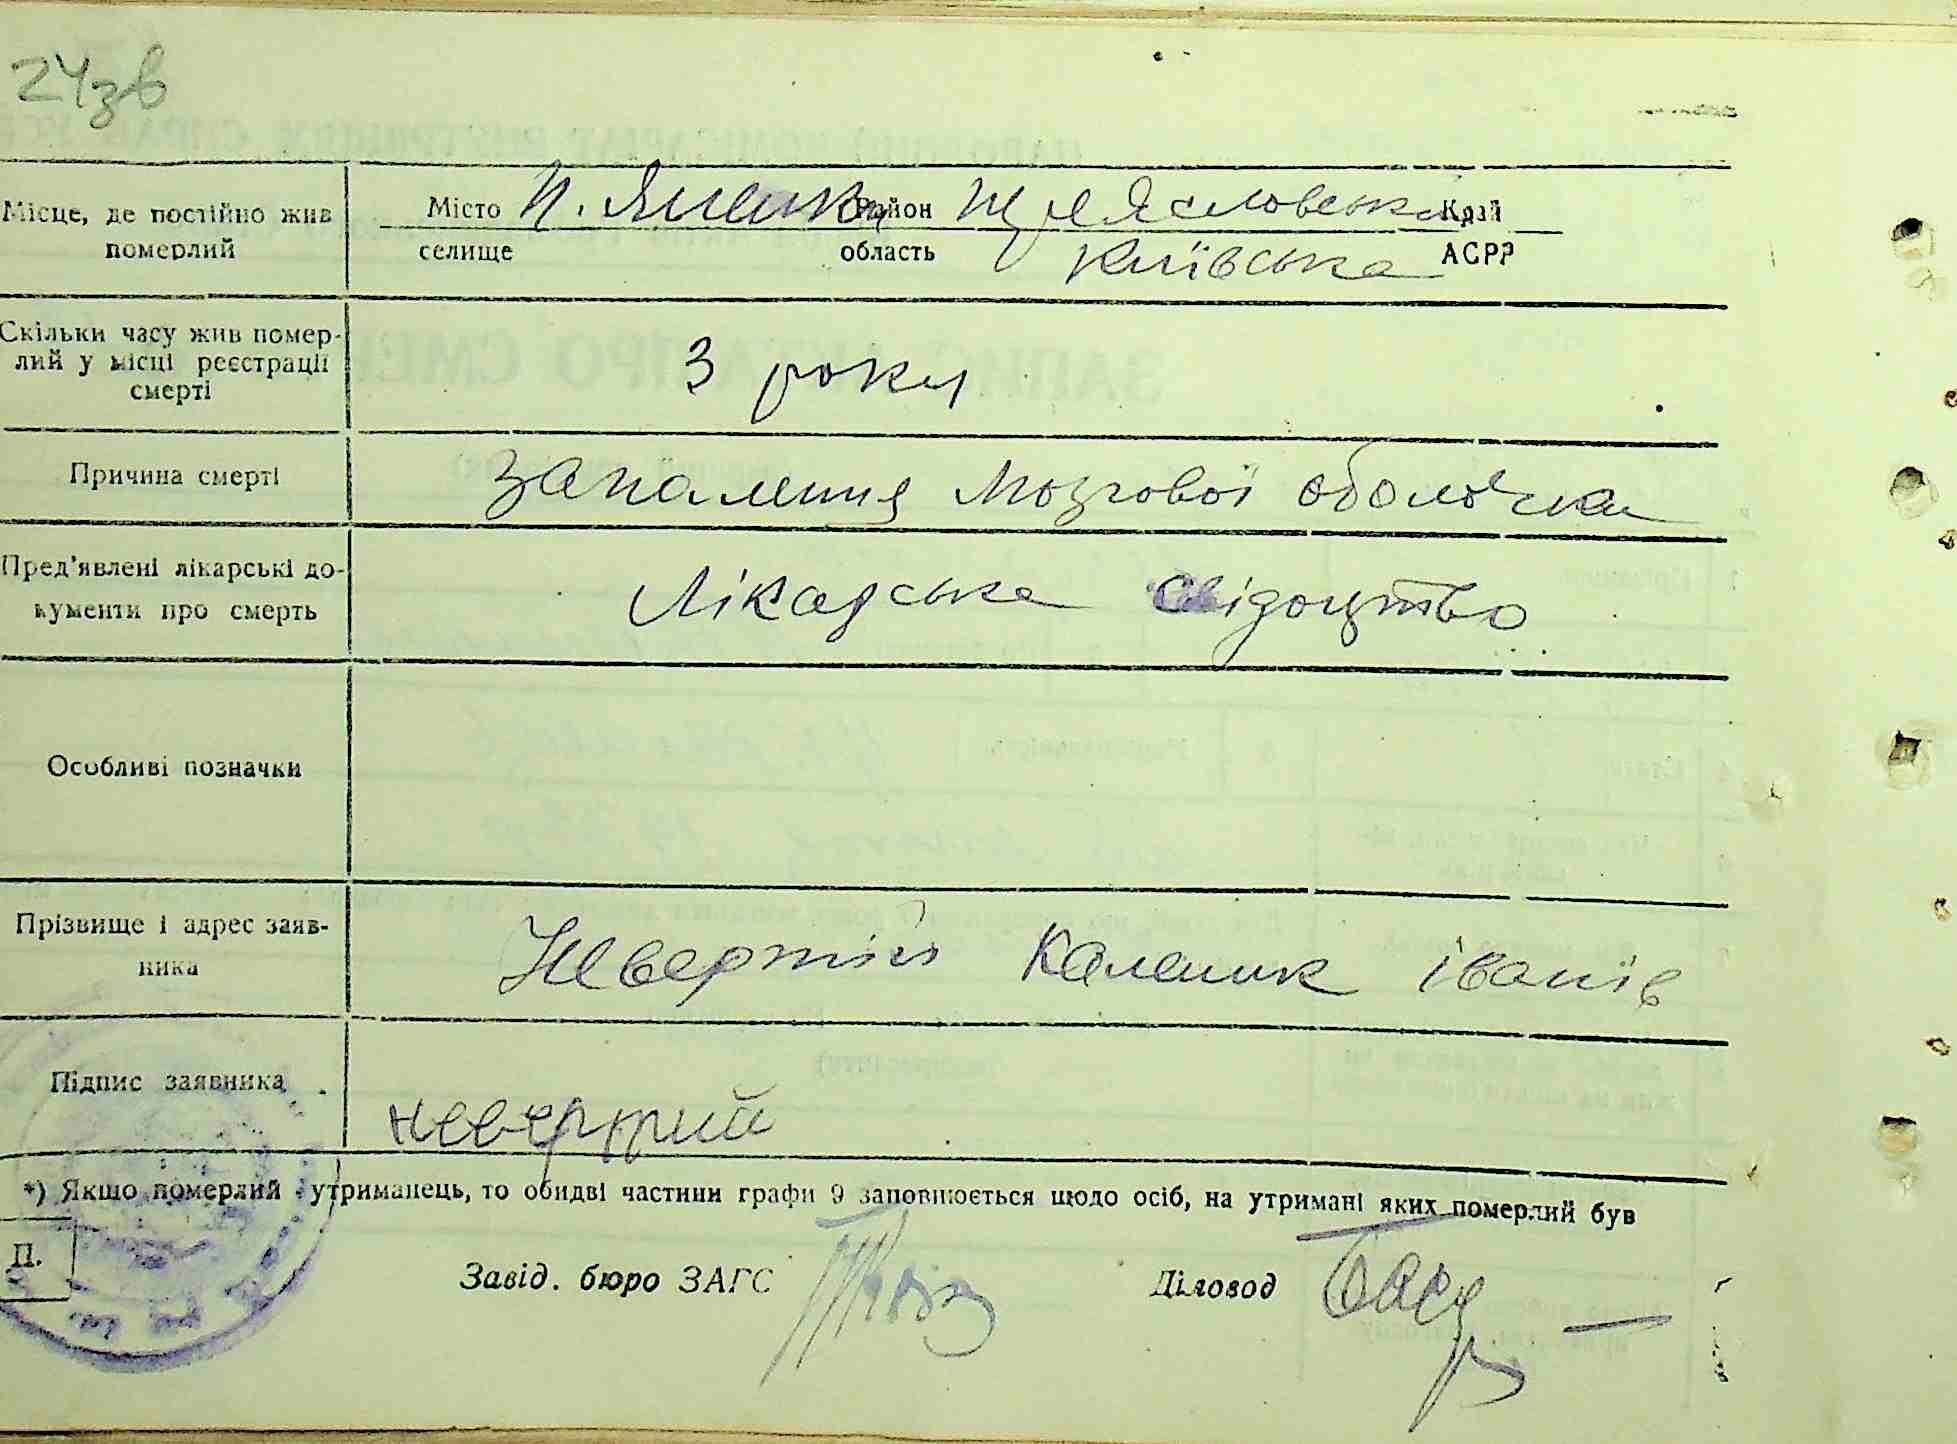 24зв
Місце, де постійно жив
померлий
Місто Район Край
селище область Київська АСРР
Скільки часу жив помер-
лий у місці реєстрації
смерті
3 роки
Причина смерті
Запалення мозгової оболочки
Пред'явлені лікарські до-
кументи про смерть
Лікарська свідоцтво
Особливі позначки
Прізвище і адрес заяв-
ника
Невертій Каленик Іванів
Підпис заявника
невертий
*) Якщо померлий утриманець, то обидві частини графи 9 заповнюється щодо осіб, на утримані яких померлий був
П.
Завід. бюро ЗАГС
Діловод